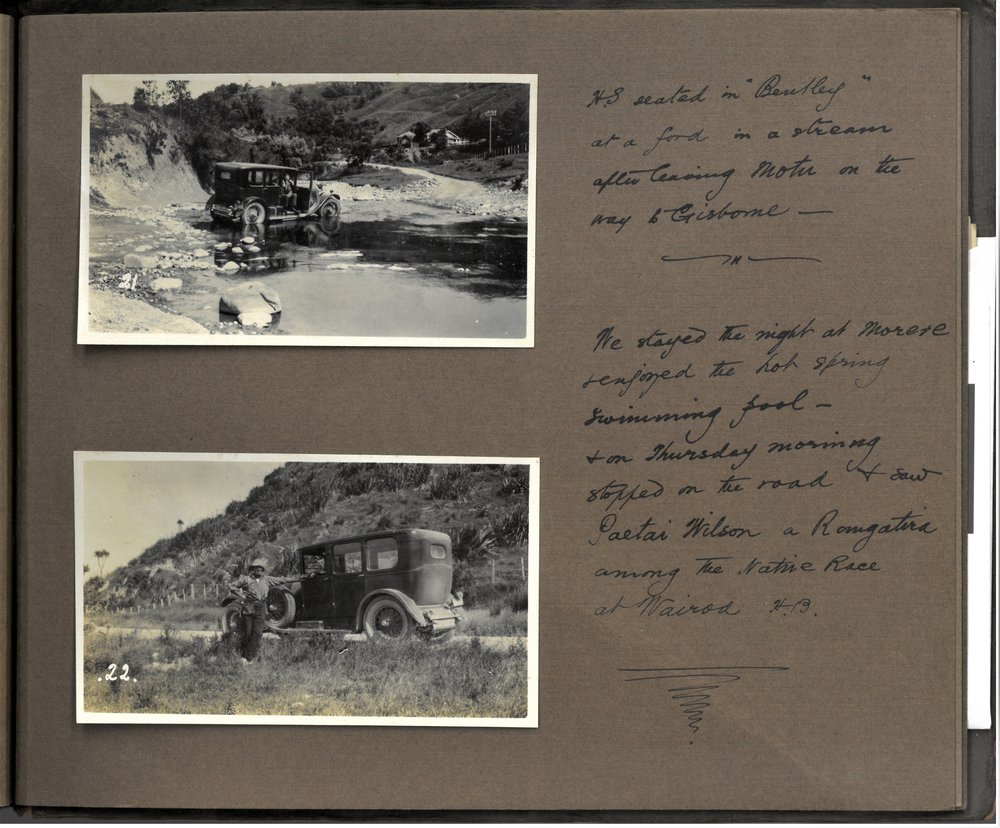 HS seated in "Bentley"
at a ford in a stream
after leaving Motu on the
way to Gisborne —
21
We stayed the night at Morere
& enjoyed the hot spring
swimming pool —
& on Thursday morning
stopped on the road & saw
Paetai Wilson a Rongatira
among the Native Race
at Wairoa H.B.
.22.